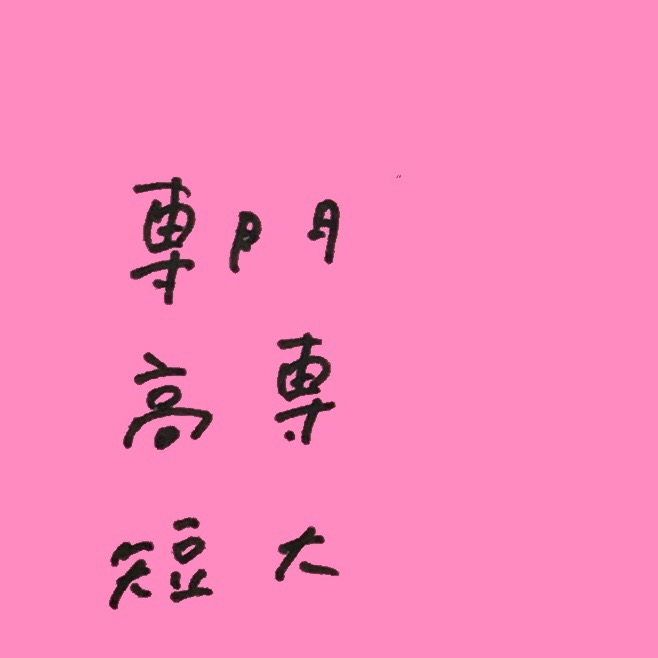 専門
高専
短大